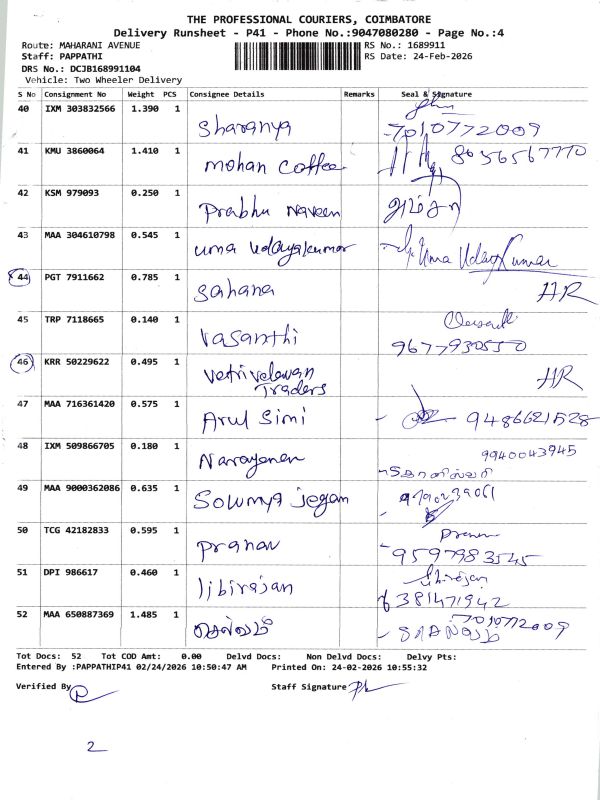 THE PROFESSIONAL COURIERS, COIMBATORE
Delivery Runsheet - P41 - Phone No.:9047080280 - Page No.:4
Route: MAHARANI AVENUE RS No.: 1689911
Staff: PAPPATHI RS Date: 24-Feb-2026
DRS No.: DCJB168991104
Vehicle: Two Wheeler Delivery
S No Consignment No Weight PCS Consignee Details Remarks Seal & Signature
40 IXM 303832566 1.390 1 Sharanya 7010772009
41 KMU 3860064 1.410 1 mohan Coffee 8056567770
42 KSM 979093 0.250 1 Prabhu Naveen
43 MAA 304610798 0.545 1 uma udayakumar Uma UdayKumar
44 PGT 7911662 0.785 1 Sahana HR
45 TRP 7118665 0.140 1 Vasanthi 9677930550
46 KRR 50229622 0.495 1 Vetrivelavan Traders HR
47 MAA 716361420 0.575 1 Arul Simi 9486621528
48 IXM 509866705 0.180 1 Narayanan 9940043945
49 MAA 9000362086 0.635 1 Soumya jegan 9790239061
50 TCG 42182833 0.595 1 Pranav 9597983545
51 DPI 986617 0.460 1 libirajan 6381471942
52 MAA 650887369 1.485 1 செல்வம் 7010772009
Tot Docs: 52 Tot COD Amt: 0.00 Delvd Docs: Non Delvd Docs: Delvy Pts:
Entered By :PAPPATHIP41 02/24/2026 10:50:47 AM Printed On: 24-02-2026 10:55:32
Verified By Staff Signature
2